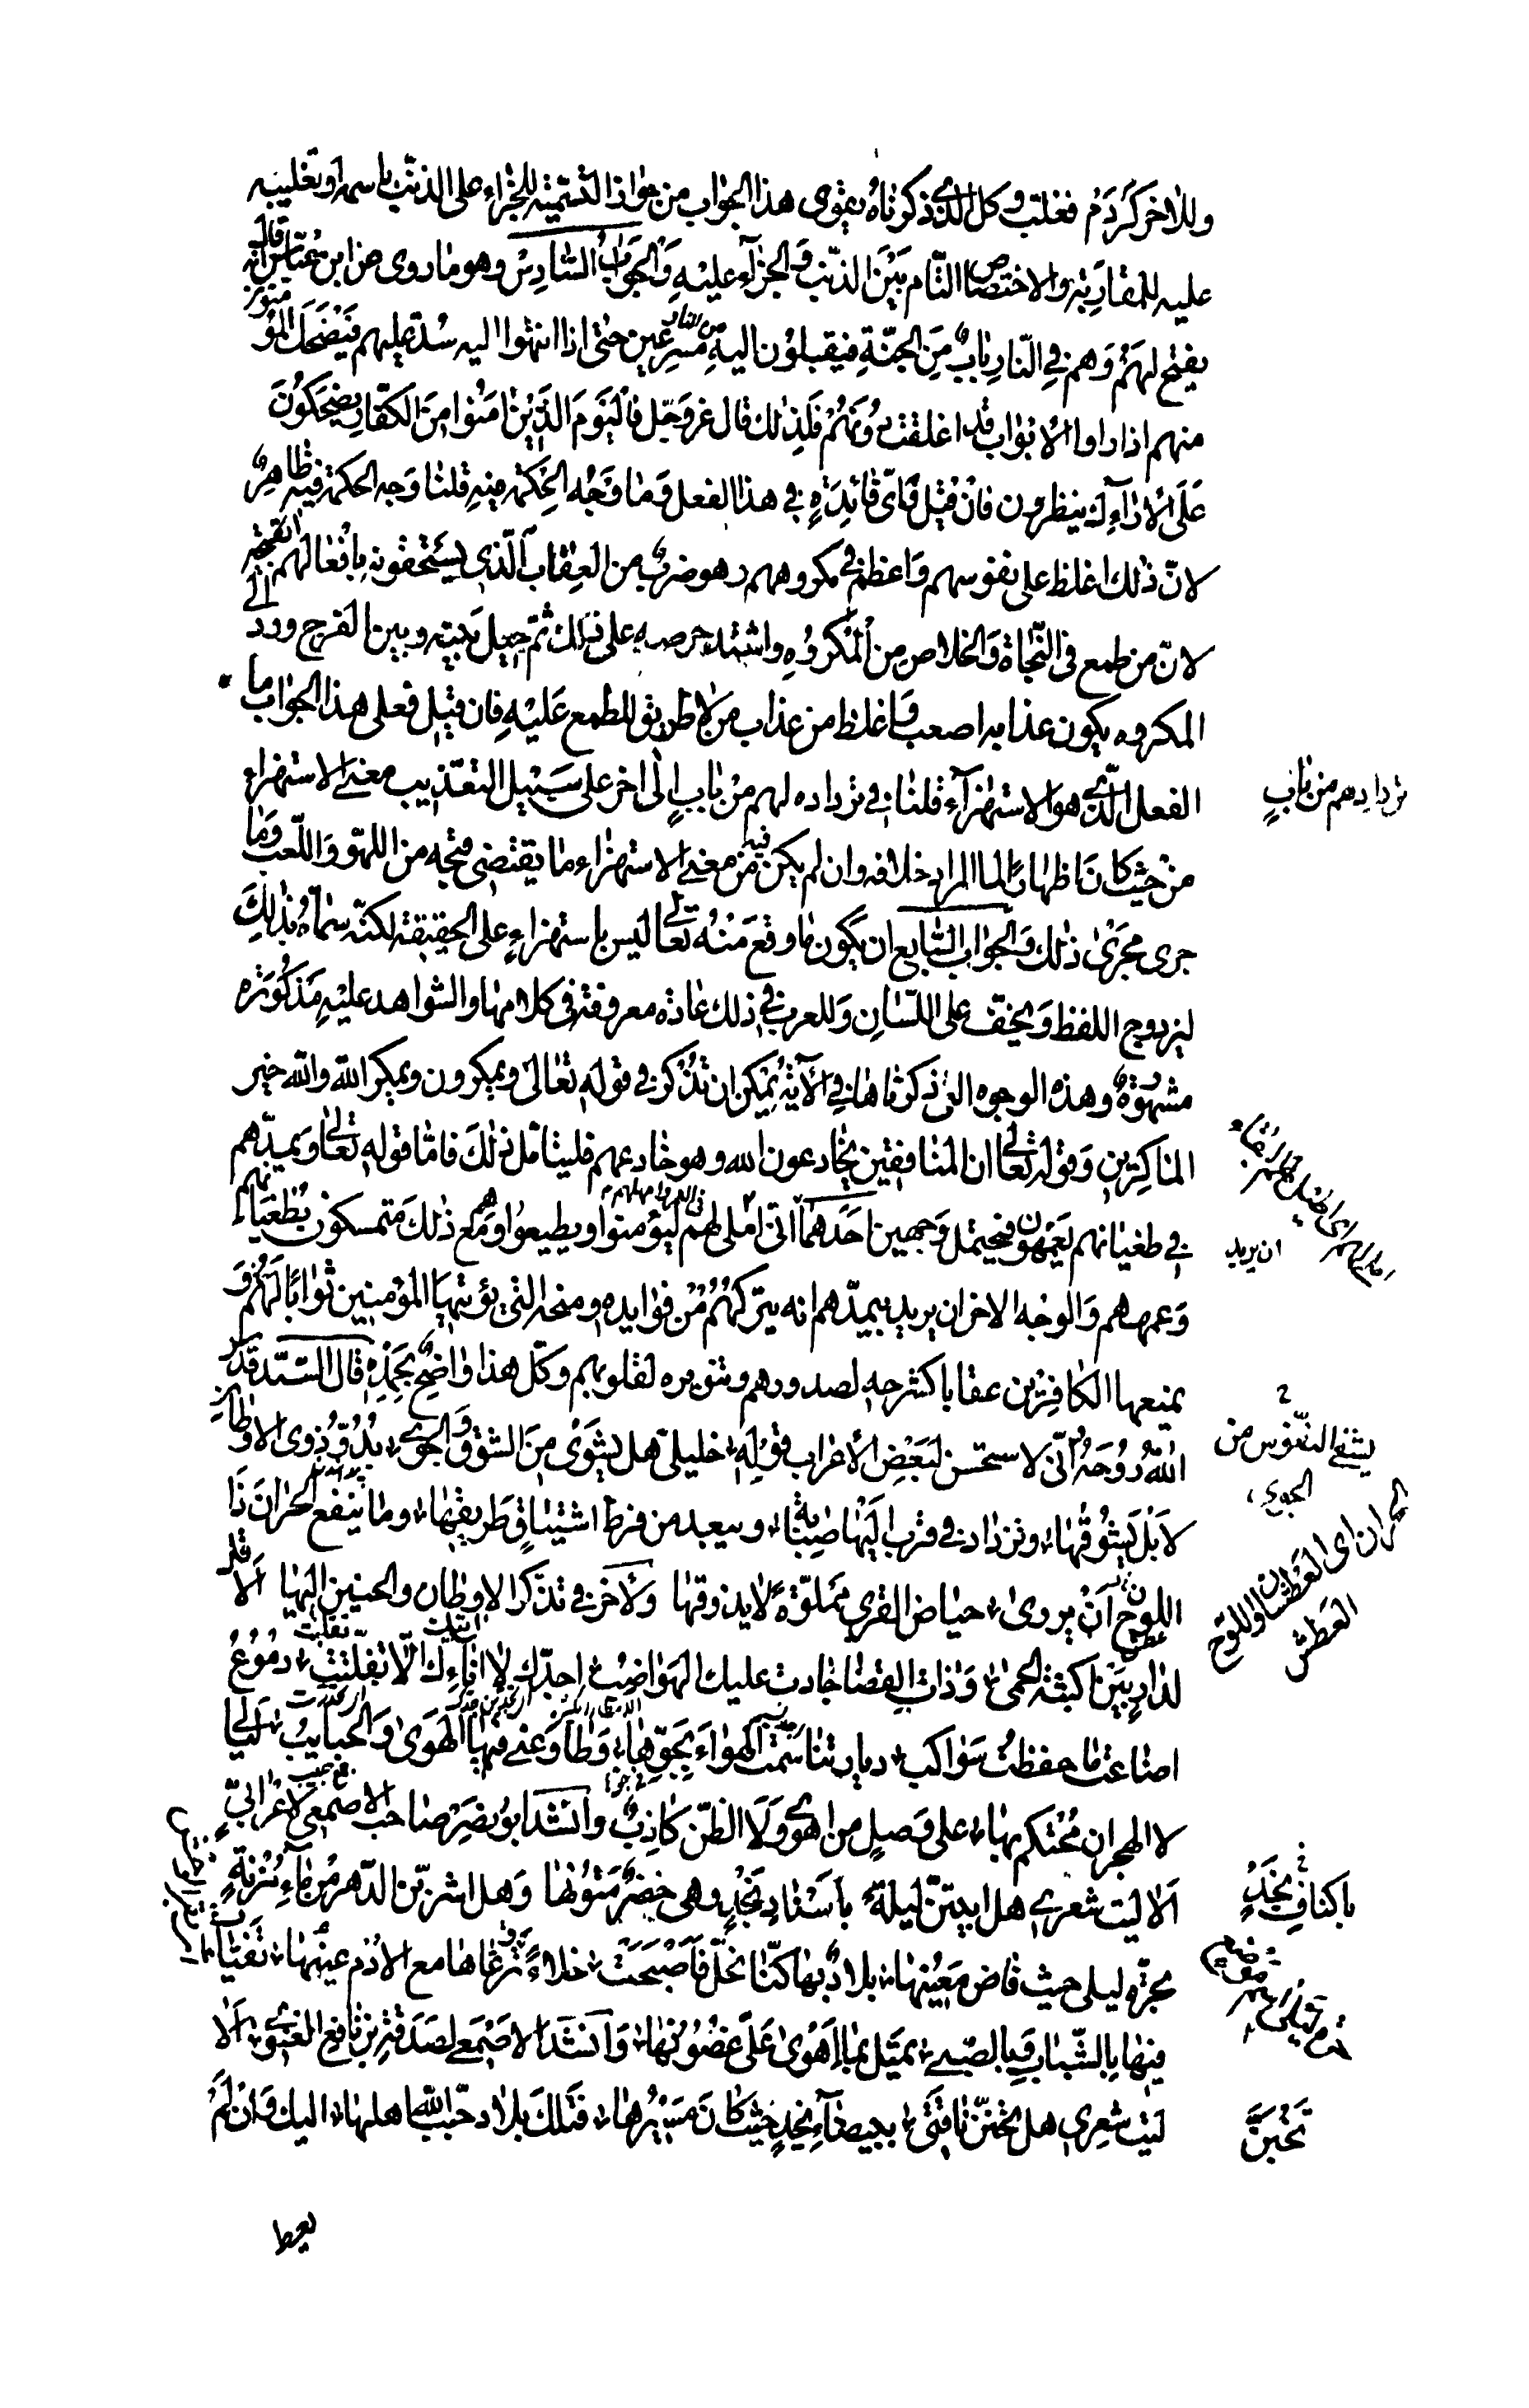 وللاخر كردم فغلب وكل الذي ذكرناه يقوى هذا الجواب من جواز التسمية للجزاء على الذنب باسمه او تغليبه
عليه للمقاربة والاختصاص التام بين الذنب والجزآء عليه والجواب السادس وهو ما روى عن ابن عباس قال انه
يفتح لهم وهم في النار باب من الجنة فيقبلون اليه من النار مسرعين حتى اذا انتهوا اليه سد عليهم فيضحك المؤمنون
منهم اذا راوا الابواب قد اغلقت دونهم فلذلك قال عز وجل فاليوم الذين امنوا من الكفار يضحكون
على الارآئك ينظرون فان قيل فاى فائدة في هذا الفعل وما وجه الحكمة فيه قلنا وجه الحكمة فيه ظاهر
لان ذلك اغلظ على نفوسهم واعظم في مكروههم وهو ضرب من العقاب الذي يستحقونه بافعالهم القبيحة
لان من طمع في النجاة والخلاص من المكروه واشتد حرصه على ذلك ثم حيل بينه وبين الفرج ورد الى
المكروه يكون عذابه اصعب واغلظ من عذاب من لا طريق للطمع عليه فان قيل فعلى هذا الجواب ما
الفعل الذي هو الاستهزآء قلنا في ترداده لهم من باب الى اخر على سبيل التعذيب معنى الاستهزاء
تردادهم من باب
من حيث كان اظهارا لما المراد خلافه وان لم يكن فيه من معنى الاستهزاء ما يقتضى قبحه من اللهو واللعب وما
جرى مجرى ذلك والجواب السابع ان يكون ما وقع منه تعالى ليس باستهزاء على الحقيقة لكنه سماه بذلك
ليزدوج اللفظ ويخف على اللسان وللعرب في ذلك عادة معروفة في كلامها والشواهد عليه مذكورة
مشهورة وهذه الوجوه التى ذكرناها في الآية يمكن ان تذكر في قوله تعالى ويمكرون ويمكر الله والله خير
الماكرين وفي قوله تعالى ان المنافقين يخادعون الله وهو خادعهم فليتامل ذلك فاما قوله تعالى ويمدهم
في طغيانهم يعمهون فيحتمل وجهين احدهما انى املى لهم ليؤمنوا ويطيعوا وهم مع ذلك متمسكون بطغيانهم
ان يريد
وعمههم والوجه الاخر ان يريد بيمدهم انه يتركهم من فوايده ومنحه التي يؤتيها المؤمنين ثوابا لهم و
يمنعها الكافرين عقابا كشرحه لصدورهم وتنويره لقلوبهم وكل هذا واضح بحمده قال السيد قدس
الله روحه انى لاستحسن لبعض الأعراب قوله خليلى هل يشفى من الشوق والجوى بدو ذوى الاوطان
يشفى النفوس من
الجوى
لا بل يشوقها وتزداد في قرب اليها صبابة ويبعد من فرط اشتياق طريقها وما ينفع الحران ذا
الحران اى العطشان واللوح
العطش
اللوح ان يروى حياض القرى مملوة لا يذوقها ولآخر في تذكر الاوطان والحنين اليها الا قل
لدار بين اكثبة الحمى وذات الغضا جادت عليك الهواضب اجدك لا اتيك الا تفلتت دموع
اضاعت ما حفظت سواكب ديار تناسمت الهواء بجوها وطاوعنى فيها الهوى والحبايب ليالى
لا الهجران محتكم بها على وصل من اهوى ولا الظن كاذب وانشد ابو نصر صاحب الاصمعي لاعرابي
الا ليت شعرى هل ابيتن ليلة باسناد نجد وهى خضر متونها وهل اشربن الدهر من مآء مزنة
باكناف نجد
بحرة ليلى حيث فاض معينها بلاد بها كنا نحل فاصبحت خلاء ترعاها مع الادم عينها تفيات
فيها بالشباب وبالصبى تميل بما اهوى على غصونها وانشد الاصمعى لصدقة بن نافع الغنوى الا
ليت شعرى هل تحنن ناقتى ببيضآء نجد حيث كان مسيرها فتلك بلاد حبب الله اهلها اليك وان لم
تخبن
يعط